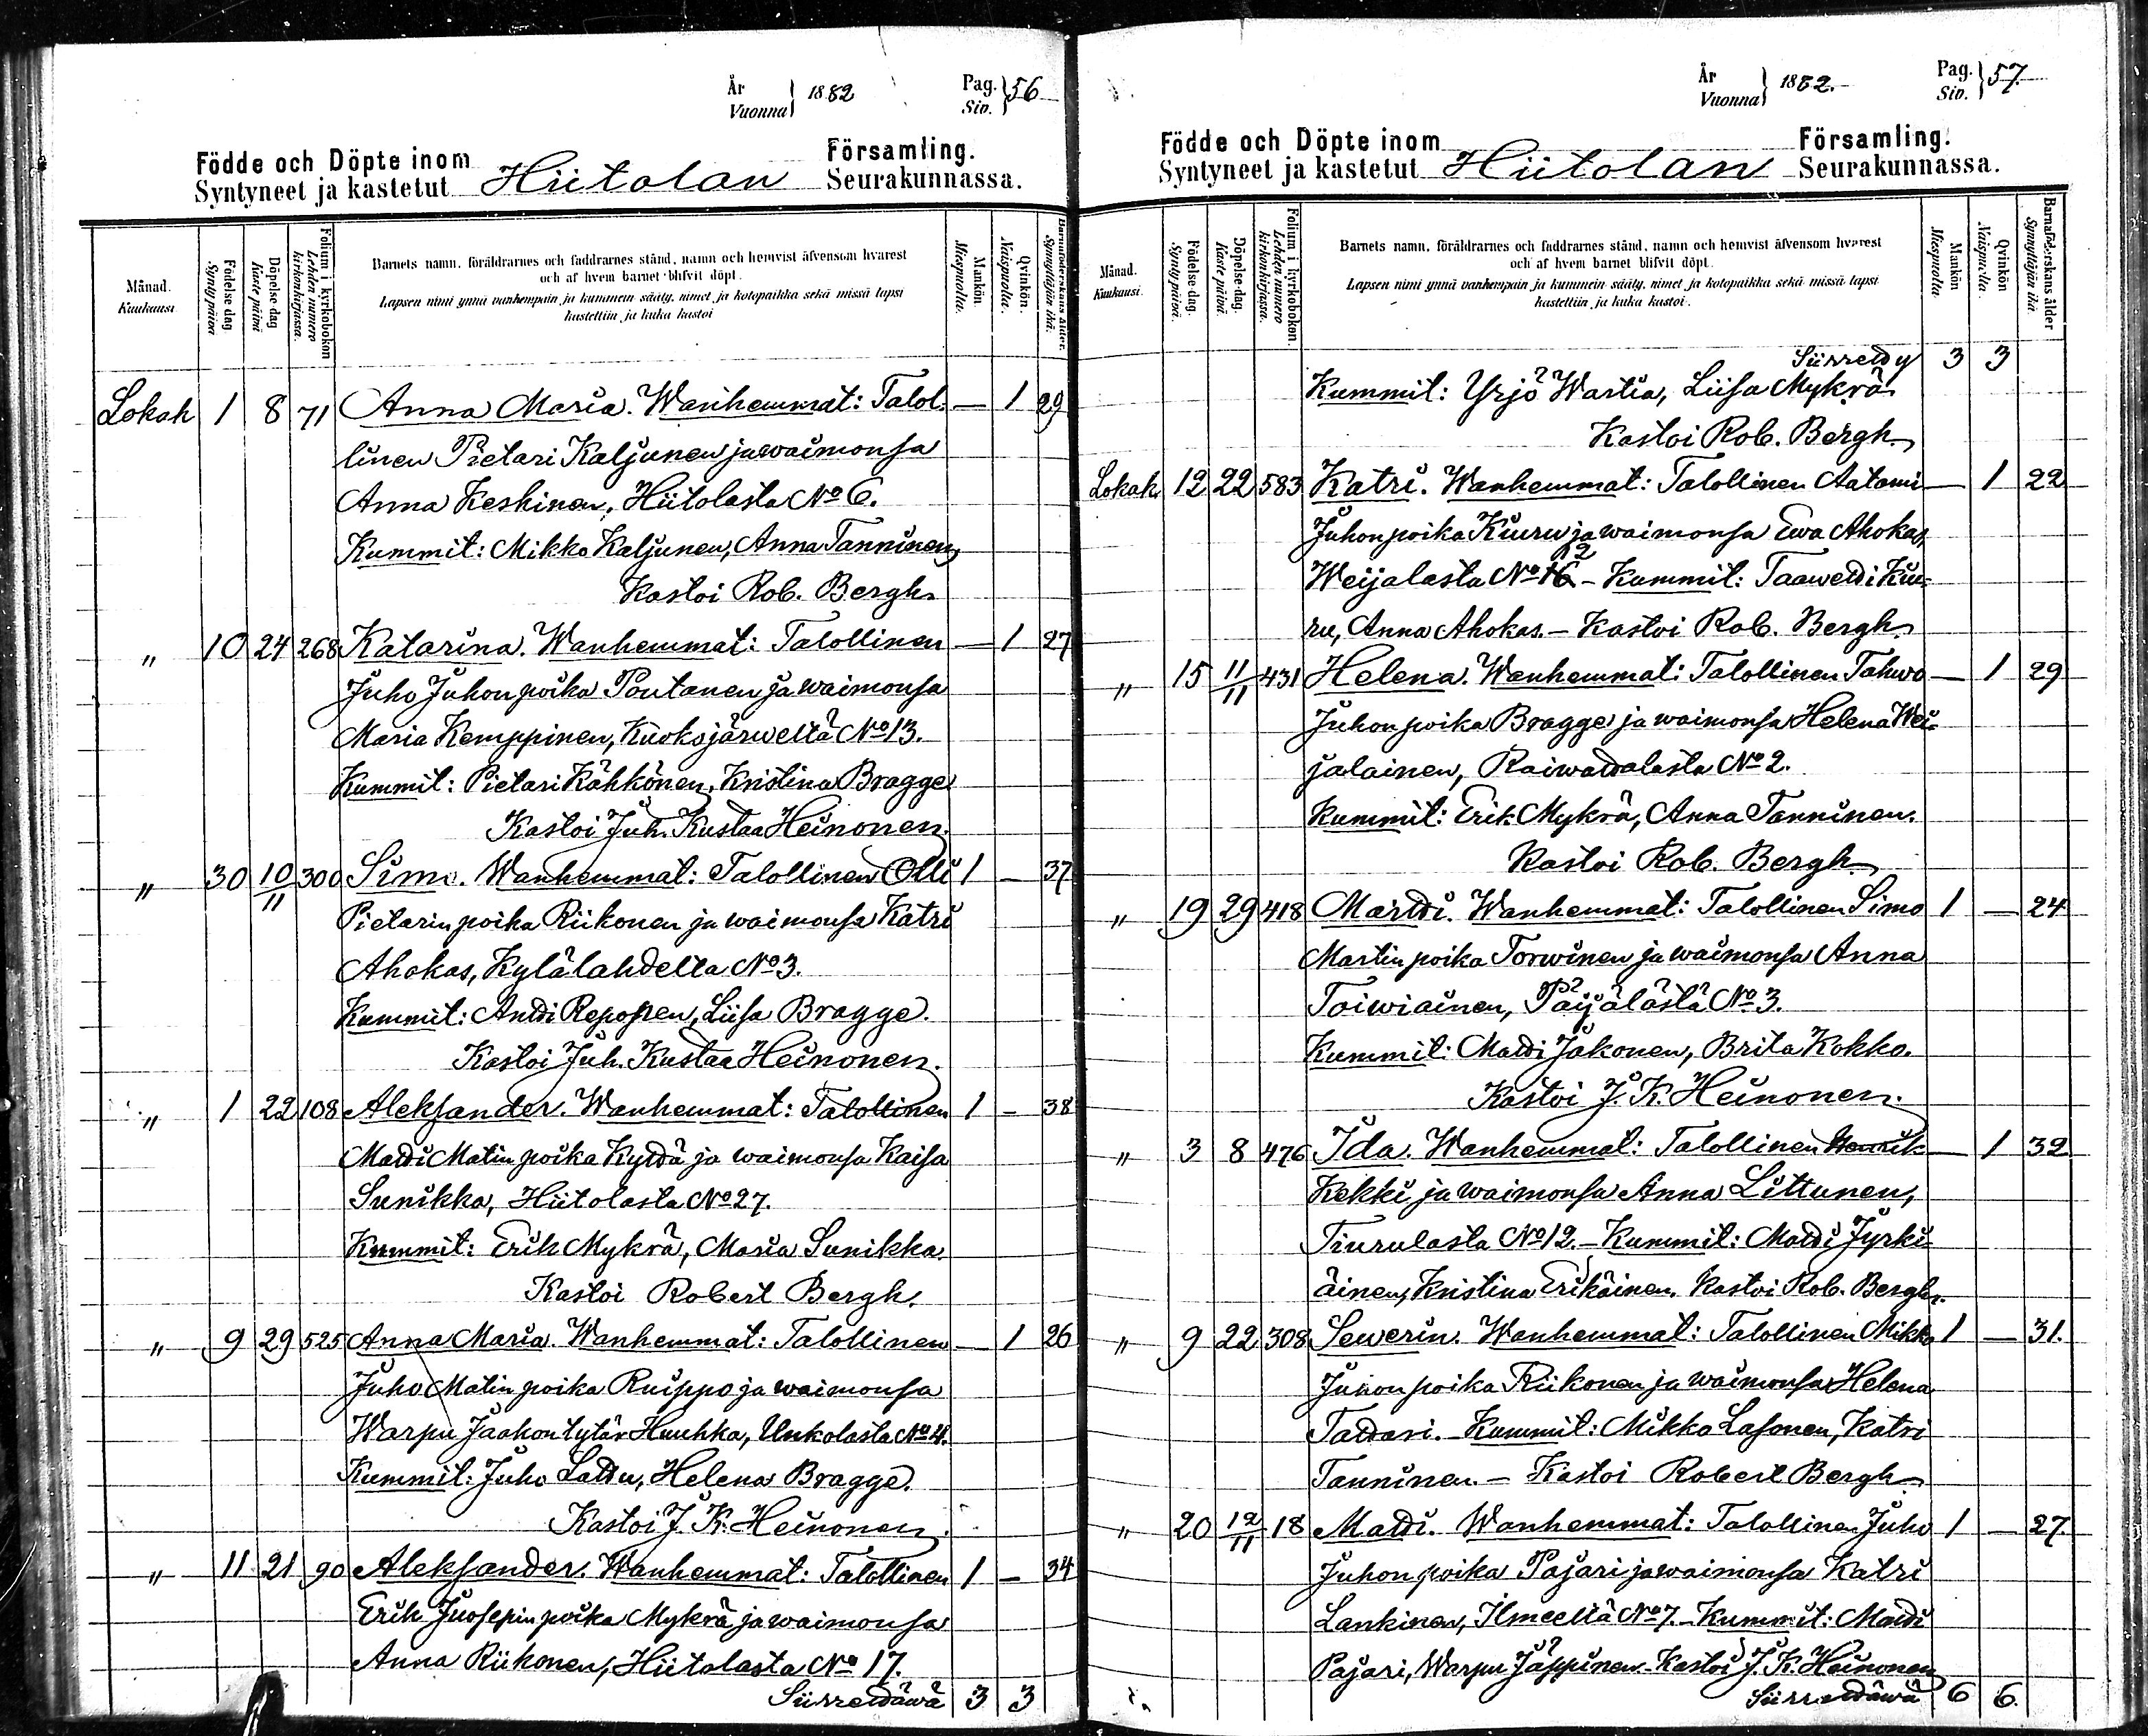 År
Vuonna } 1882 Pag.
Siv. } 56
Födde och Döpte inom
Syntyneet ja kastetut Hiitolan Församling.
Seurakunnassa.
Månad.
Kuukausi.
Födelse dag
Synty päivä
Döpelse dag
Kaste päivä
Folium i kyrkobokon
Lehden numero
kirkonkirjassa.
Barnets namn, föräldrarnes och faddrarnes stånd, namn och hemvist äfvensom hvarest
och af hvem barnet blifvit döpt.
Lapsen nimi ynnä vanhempain ja kummein sääty, nimet ja kotopaikka sekä missä lapsi
kastettiin ja kuka kastoi
Mankön.
Miespuolta.
Qvinkön.
Naispuolta.
Barnaföderskans ålder.
Synnyttäjän ikä.
Lokak 1 8 71 Anna Maria. Wanhemmat: Talol- — 1 29
linen Pietari Kaljunen ja waimonsa
Anna Keskinen, Hiitolasta No 6.
Kummit: Mikko Kaljunen, Anna Tanninen,
Kastoi Rob. Bergh.
" 10 24 268 Katarina. Wanhemmat: Talollinen — 1 27
Juho Juhonpoika Poutanen ja waimonsa
Maria Kemppinen, Kuoksjärweltä No 13.
Kummit: Pietari Kähkönen, Kristina Bragge
Kastoi Juh. Kustaa Heinonen.
" 30 10/11 300 Simo. Wanhemmat: Talollinen Olli 1 — 37
Pietarin poika Riikonen ja waimonsa Katri
Ahokas, Kylälahdelta No 3.
Kummit: Antti Reponen, Liisa Bragge.
Kastoi Juh. Kustaa Heinonen.
" 1 22 108 Aleksander. Wanhemmat: Talollinen 1 - 38
Matti Matin poika Kyttä ja waimonsa Kaisa
Sunikka, Hiitolasta No 27.
Kummit: Erik Mykrä, Maria Sunikka.
Kastoi Robert Bergh.
" 9 29 525 Anna Maria. Wanhemmat: Talollinen — 1 26
Juho Matin poika Ruippo ja waimonsa
Warpu Jaakon tytär Huuhka, Unkolasta No 4.
Kummit: Juho Lattu, Helena Bragge.
Kastoi J. K. Heinonen.
" 11 21 90 Aleksander. Wanhemmat: Talollinen 1 — 34
Erik Juosepin poika Mykrä ja waimonsa
Anna Riikonen, Hiitolasta No 17.
Siirrettäwä 3 3
År
Vuonna } 1882. Pag.
Siv. } 57.
Födde och Döpte inom
Syntyneet ja kastetut Hiitolan Församling.
Seurakunnassa.
Månad.
Kuukausi.
Födelse-dag.
Synty päivä.
Döpelse-dag.
Kaste päivä.
Folium i kyrkobokon.
Lehden numero
kirkonkirjassa.
Barnets namn, föräldrarnes och faddrarnes stånd, namn och hemvist äfvensom hvarest
och af hvem barnet blifvit döpt.
Lapsen nimi ynnä vanhempain ja kummein sääty, nimet ja kotopaikka sekä missä lapsi
kastettiin ja kuka kastoi.
Mankön
Miespuolta
Qvinkön
Naispuolta.
Barnaföderskans ålder
Synnyttäjän ikä.
Siirretty 3 3
Kummit: Yrjö Wartia, Liisa Mykrä
Kastoi Rob. Bergh.
Lokak. 12 22 583 Katri. Wanhemmat: Talollinen Aatami — 1 22
Juhonpoika Kiuru ja waimonsa Ewa Ahokas,
Weijalasta No 12 - Kummit: Taawetti Kiu-
ru, Anna Ahokas. — Kastoi Rob. Bergh.
" 15 11/11 431 Helena. Wanhemmat: Talollinen Tahwo — 1 29
Juhon poika Bragge ja waimonsa Helena Wei-
jalainen, Raiwattalasta No 2.
Kummit: Erik Mykrä, Anna Tanninen.
Kastoi Rob. Bergh.
" 19 29 418 Martti. Wanhemmat: Talollinen Simo 1 — 24
Martin poika Torwinen ja waimonsa Anna
Toiwiainen, Päijälästä No 3.
Kummit: Matti Jakonen, Brita Kokko.
Kastoi J. K. Heinonen.
" 3 8 476 Ida. Wanhemmat: Talollinen Henrik — 1 32
Kekki ja waimonsa Anna Littunen,
Tiurulasta No 12. — Kummit: Matti Jyrki-
äinen, Kristina Erikäinen. Kastoi Rob. Bergh.
" 9 22 308 Sewerin. Wanhemmat: Talollinen Mikko 1 — 31.
Juhon poika Riikonen ja waimonsa Helena
Tattari. — Kummit: Mikko Lasonen, Katri
Tanninen. — Kastoi Robert Bergh.
" 20 12/11 18 Matti. Wanhemmat: Talollinen Juho 1 — 27.
Juhon poika Pajari ja waimonsa Katri
Lankinen, Ilmeeltä No 7. — Kummit: Matti
Pajari, Warpu Jäppinen. Kastoi J. K. Heinonen
Siirrettäwä 6 6.